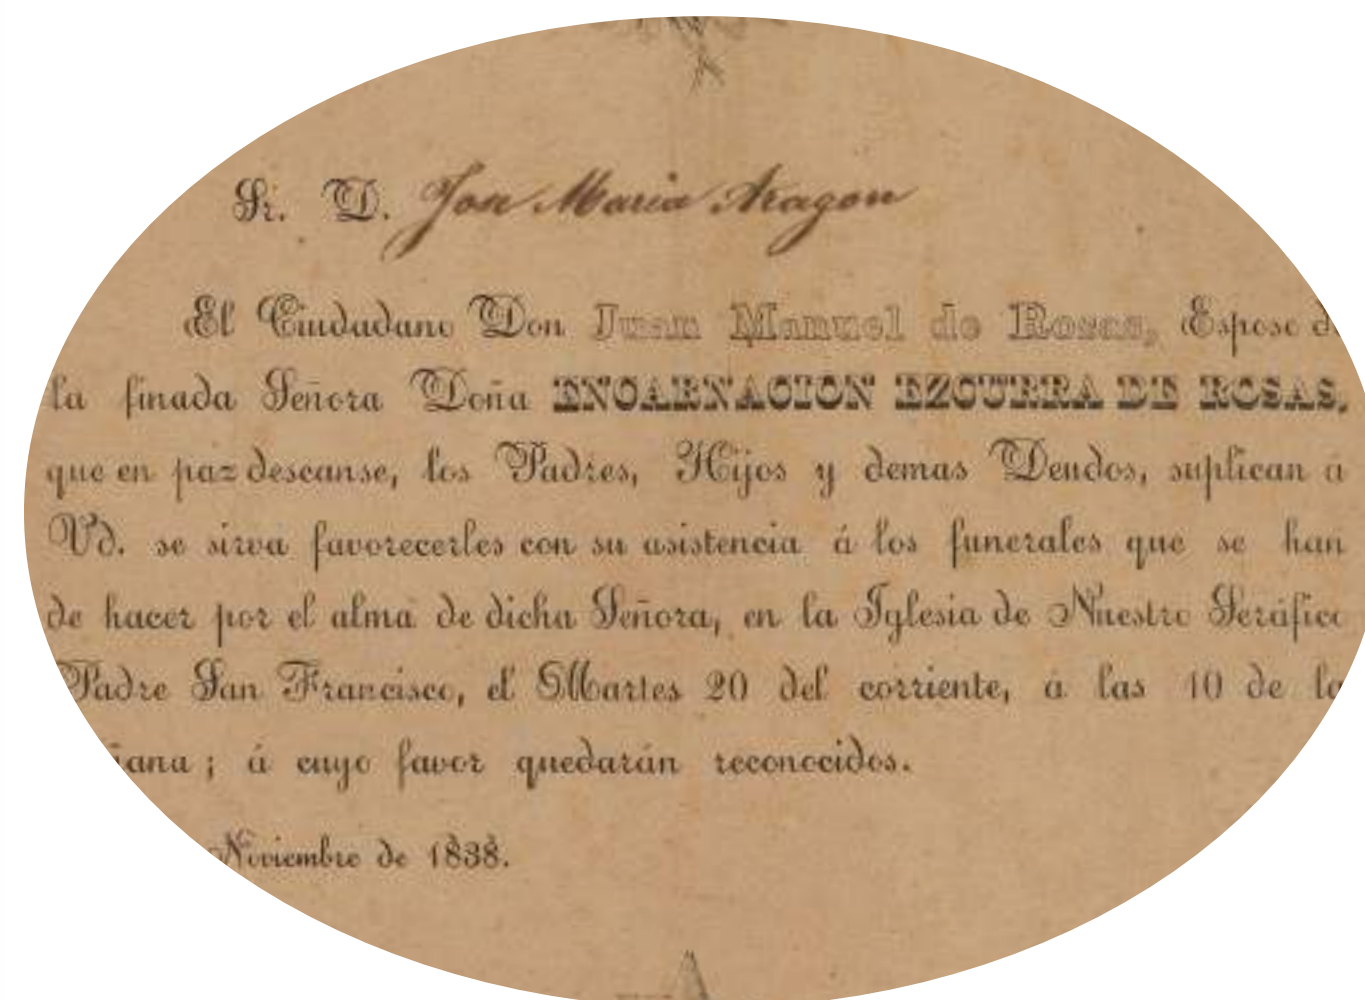 Sr. D. Jose Maria Aragon
El Ciudadano Don Juan Manuel de Rosas, Esposo d
la finada Señora Doña ENCARNACION EZCURRA DE ROSAS,
que en paz descanse, los Padres, Hijos y demas Deudos, suplican á
Vd. se sirva favorecerles con su asistencia á los funerales que se han
de hacer por el alma de dicha Señora, en la Iglesia de Nuestro Seráfico
Padre San Francisco, el Martes 20 del corriente, á las 10 de la
ñana; á cuyo favor quedarán reconocidos.
Noviembre de 1838.